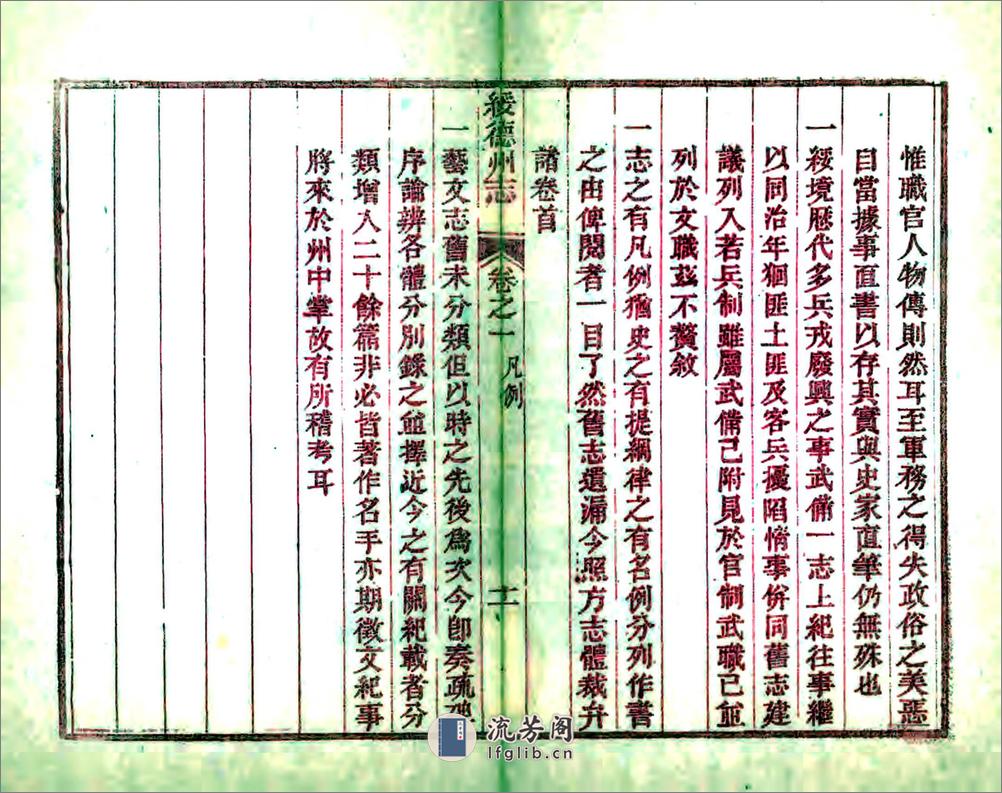 惟職官人物傳則然耳至軍務之得失政俗之美惡
自當據事直書以存其實與史家直筆仍無殊也
一綏境歷代多兵戎廢興之事武備一志上紀往事繼
以同治年狪匪土匪及客兵擾陷情事併同舊志建
議列入若兵制雖屬武備已附見於官制武職已並
列於文職茲不贅敘
一志之有凡例猶史之有提綱律之有名例分列作書
之由俾閱者一目了然舊志遺漏今照方志體裁弁
諸卷首
綏德州志 卷之一 凡例 十一
一藝文志舊未分類但以時之先後為次今卽奏疏
序論辨各體分別錄之並擇近今之有關紀載者分
類增入二十餘篇非必皆著作名手亦期徵文紀事
將來於州中掌故有所稽考耳
流芳阁
lfglib.cn